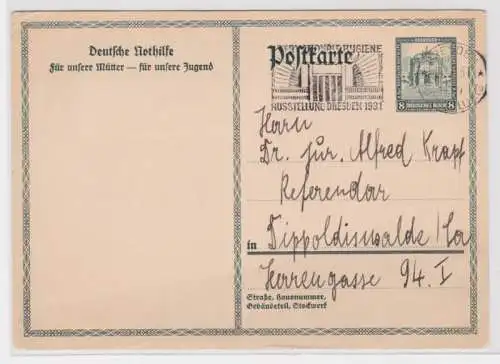 Deutsche Nothilfe
Für unsere Mütter — für unsere Jugend
Postkarte
HYGIENE
AUSSTELLUNG DRESDEN 1931
8 DEUTSCHES REICH 8
Herrn
Dr. jur. Alfred Krapf
Referendar
in Dippoldiswalde/Sa
Herrengasse 94. I
Straße, Hausnummer,
Gebäudeteil, Stockwerk